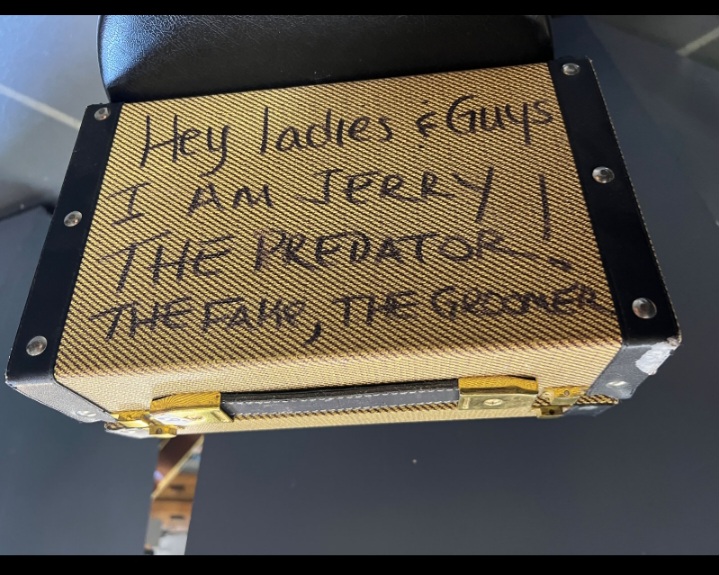 Hey ladies & Guys
I AM JERRY !
THE PREDATOR.
THE FAKe, THE GROOMER